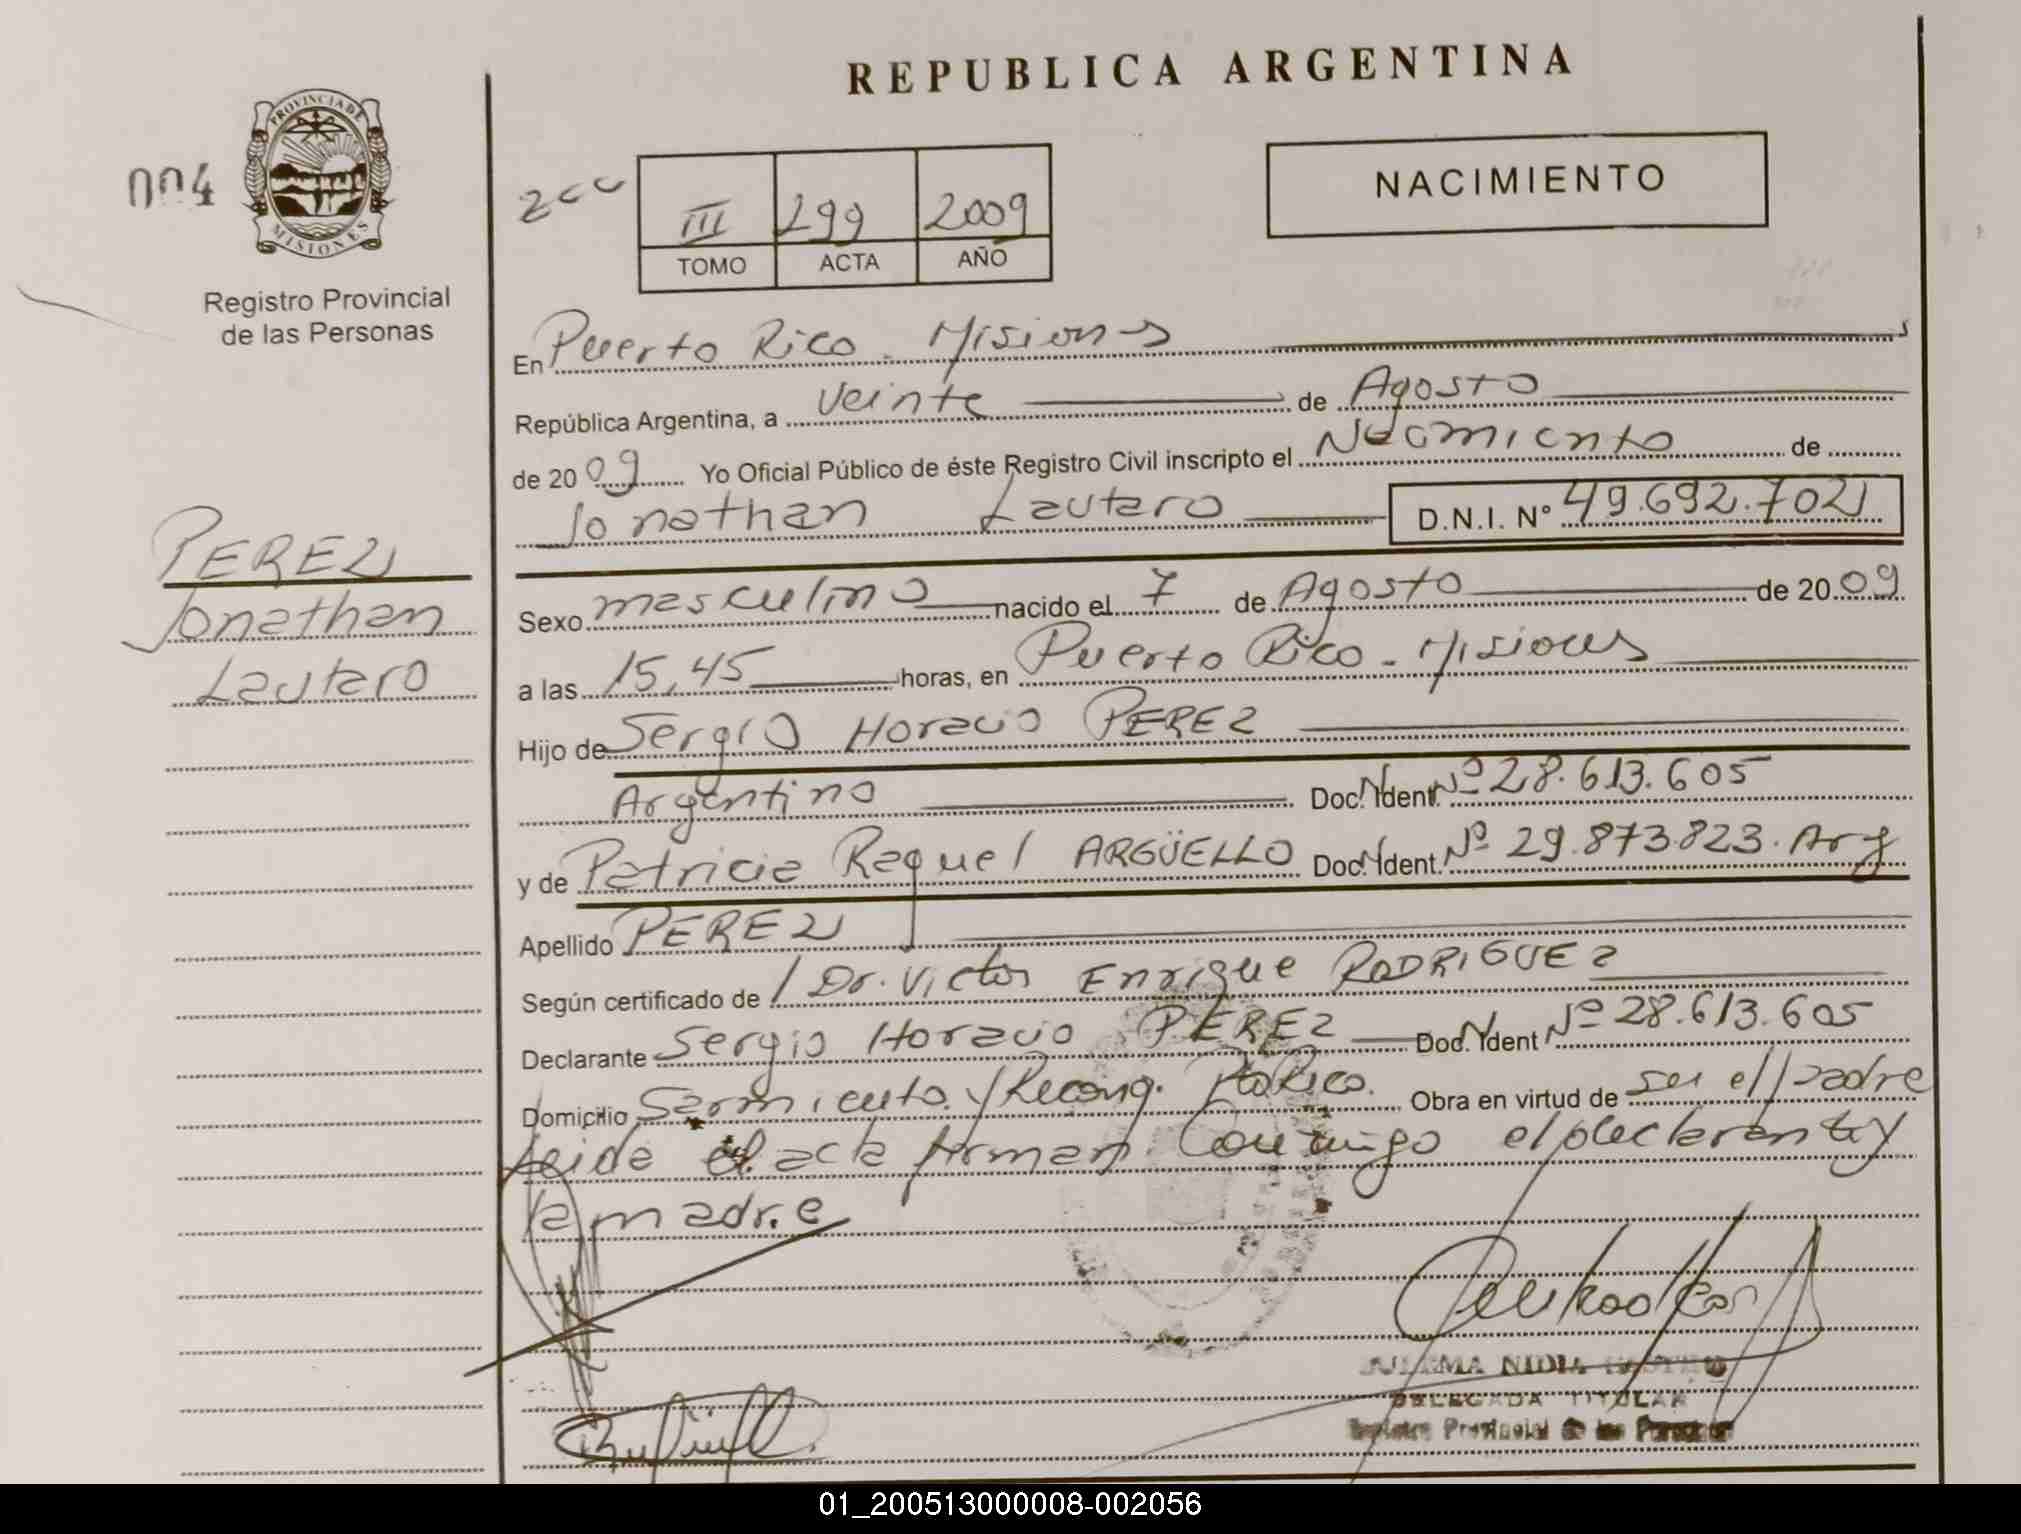 REPUBLICA ARGENTINA
004
PROVINCIA DE
MISIONES
Registro Provincial
de las Personas
200
III 299 2009
TOMO ACTA AÑO
NACIMIENTO
En Puerto Rico - Misiones
República Argentina, a veinte de Agosto
de 2009 Yo Oficial Público de éste Registro Civil inscripto el Nacimiento de
Jonathan Lautaro D.N.I. Nº 49.692.702
PEREZ
Jonathan
Lautaro
Sexo masculino nacido el 7 de Agosto de 2009
a las 15,45 horas, en Puerto Rico - Misiones
Hijo de Sergio Horacio PEREZ
Argentino Doc. Ident. Nº 28.613.605
y de Patricia Raquel ARGÜELLO Doc. Ident. Nº 29.873.823. Arg
Apellido PEREZ
Según certificado de / Dr. Victor Enrique RODRIGUEZ
Declarante Sergio Horacio PEREZ Doc. Ident Nº 28.613.605
Domicilio Sarmiento y Reconq. Pto Rico. Obra en virtud de ser el padre
leida el acta firman conmigo el declarante y
la madre
NIDIA
DELEGADA TITULAR
Registro Provincial de las Personas
01_200513000008-002056